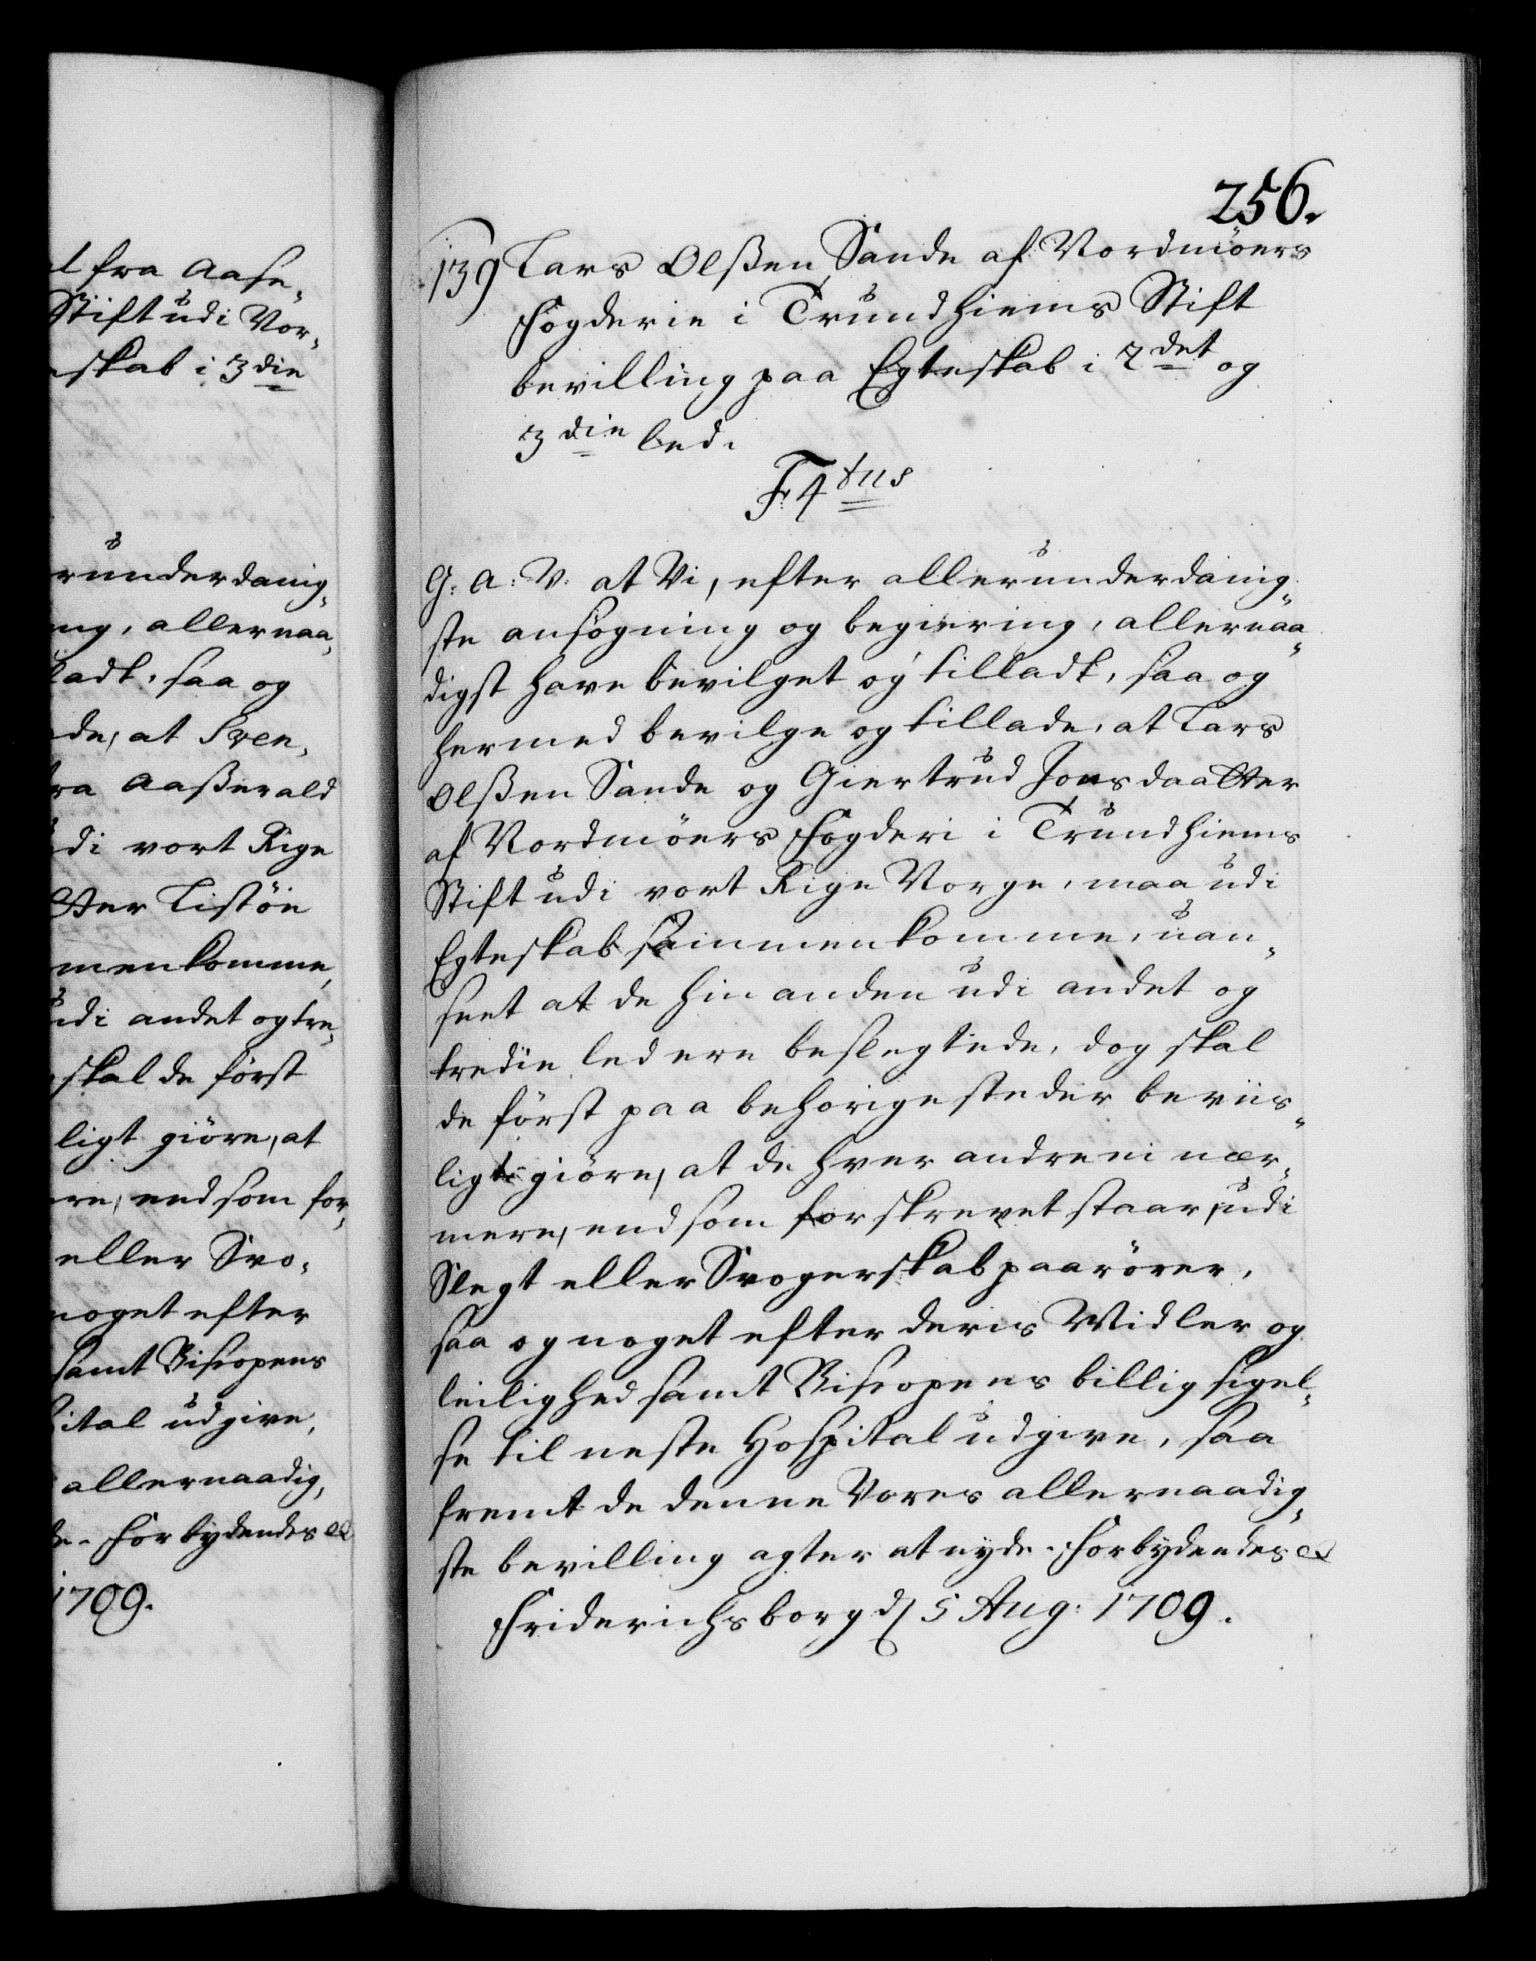 l fra Aase-
Stift udi Nor-
skab i 3die
erunderdanig-
ing, allernaa-
ladt, saa og
de, at Sven-
fra Aasserald
udi vort Rige
tter Listöe
menkomme,
udi andet og tre-
skal de först
ligt giöre, at
ere, end som for-
eller Svo-
noget efter
samt Biscopens
pital udgive,
allernaadig-
de. Forbydendes &
1709.
256.
139 Lars Olssen Sande af Nordmöers
Fogderie i Trundhiems Stift
bevilling paa Egteskab i 2det og
3die led.
F4tus
G: A: V. at Vi, efter allerunderdanig-
ste ansögning og begiering, allernaa-
digst have bevilget og tilladt, saa og
hermed bevilge og tillade, at Lars
Olssen Sande og Giertrud Jonsdaatter
af Nordmöers Fogderi i Trundhiems
Stift udi vort Rige Norge, maa udi
Egteskab sammenkomme, uan-
seet at de hinanden udi andet og
tredie led ere beslegtede, dog skal
de först paa behörige steder beviis-
ligt giöre, at de hver andre ei nær-
mere, end som forskrevet staar, udi
Slegt eller Svogerskab paarörer,
saa og noget efter deris Midler og
leilighed samt Biscopens billig sigel-
se til neste Hospital udgive, saa
fremt de denne Vores allernaadig-
ste bevilling agter at nyde. Forbydendes &
Friderichsborg d 5 Aug: 1709.